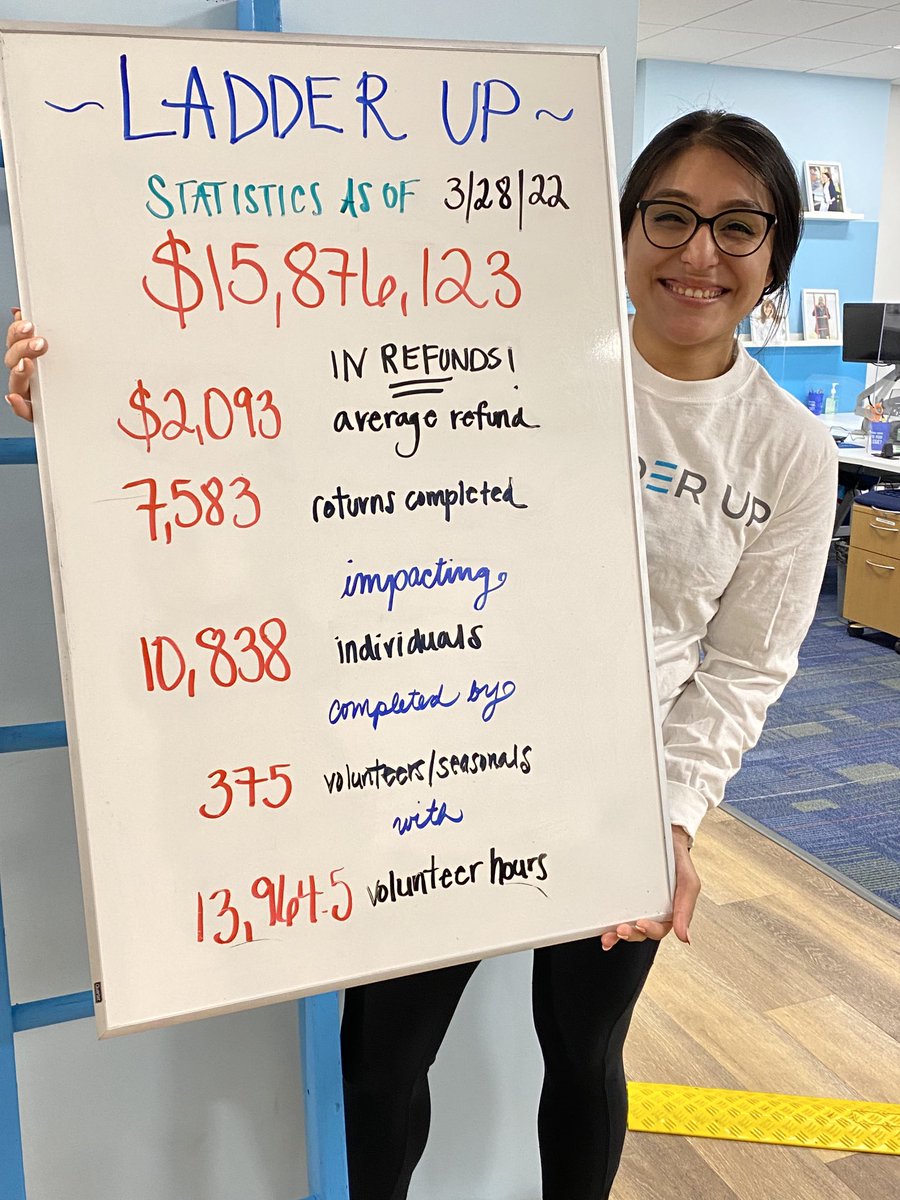 ~ LADDER UP ~
STATISTICS AS OF 3/28/22
$15,876,123
IN REFUNDS!
$2,093 average refund
7,583 returns completed
impacting
10,838 individuals
completed by
375 volunteers/seasonals
with
13,964.5 volunteer hours
DER UP